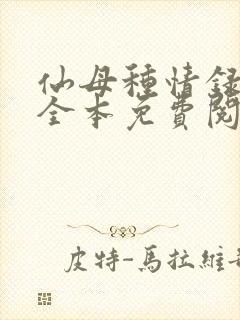 仙母種情録
全本免費閱
皮特-馬拉維